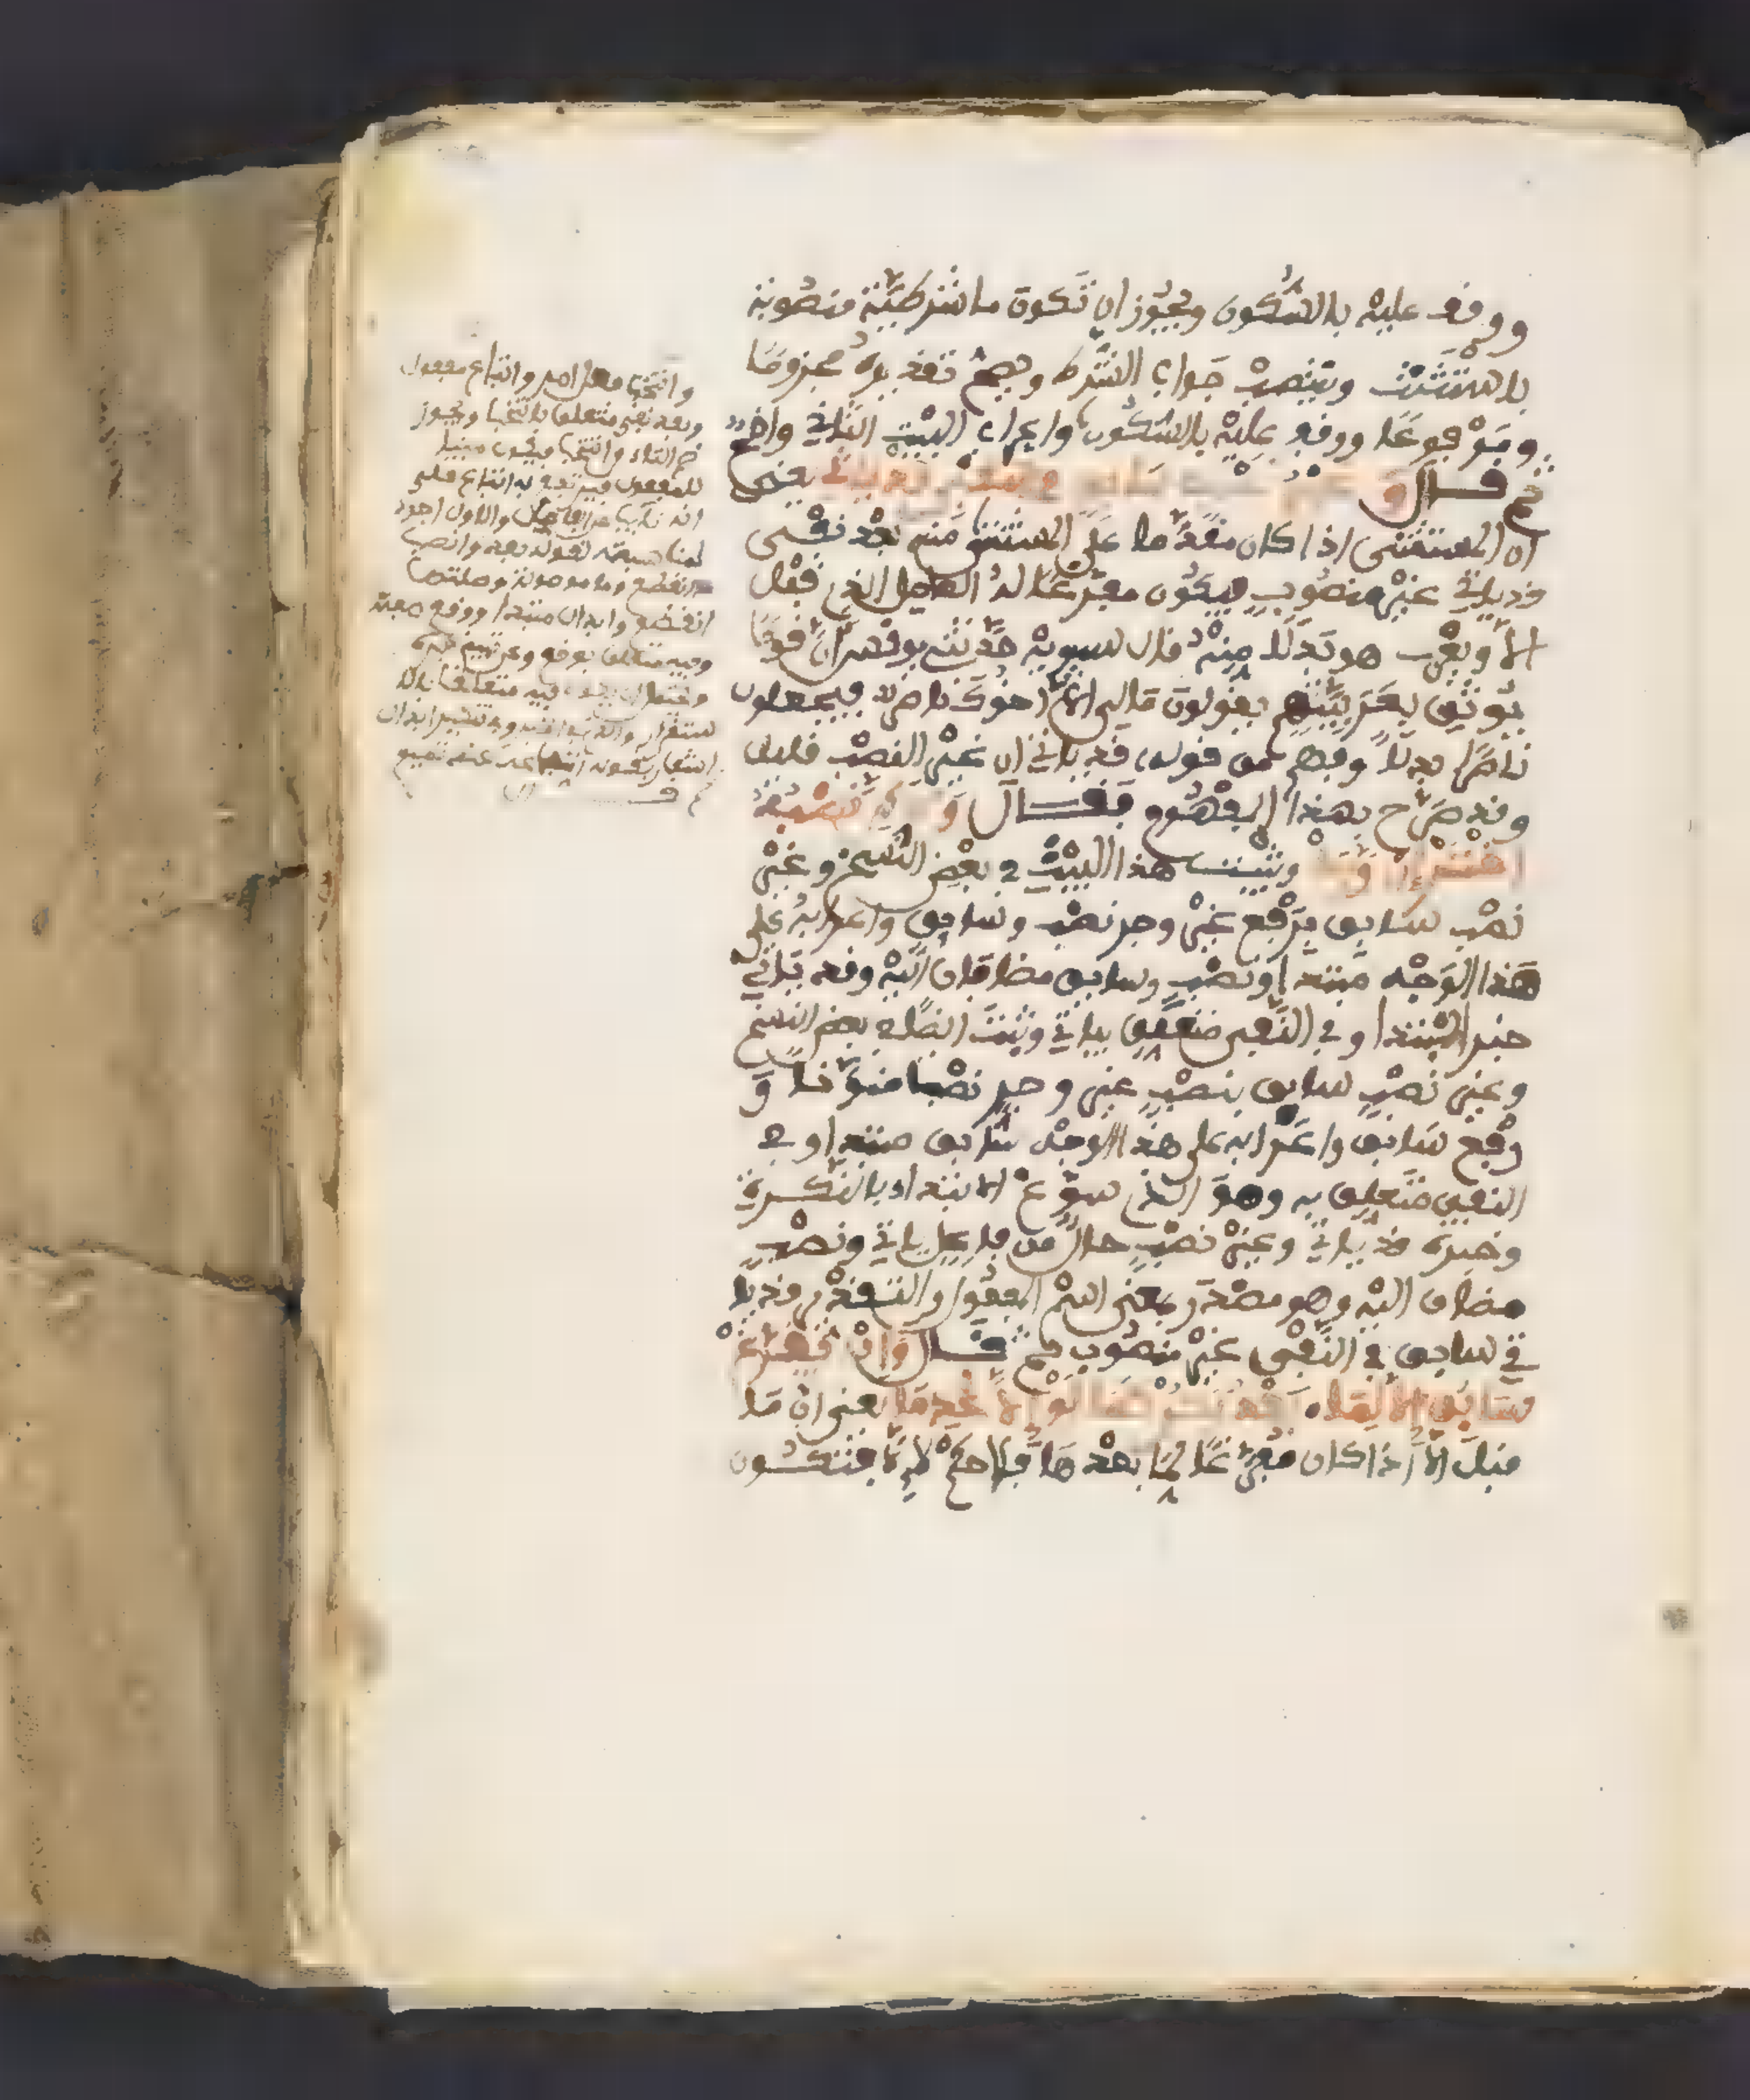 ووقف عليه بالسكون ويجوز ان تكون ما شرطية منصوبة
باستثنت وينتصب جواب الشرط ويصح تقديره مجزوما
ومرفوعا ووقف عليه بالسكون واعراب البيت الثاني واضح
ثم قال وغير نصب سابق في النفي قد ياتي يعني
ان المستثنى اذا كان مقدما على المستثنى منه بعد نفي
قد ياتي غير منصوب فيكون مفرغا له العامل الذي قبل
الا ويعرب هو بدلا منه قال سيبويه حدثني يونس ان قوما
يوثق بعربيتهم يقولون مالي الا اخوك ناصر فيجعلون
ناصرا بدلا وفهم من قوله قد ياتي ان غير النصب قليل
وقد صرح بهذا المفهوم فقال ولكن نصبه
اختر ان ورد وثبت هذا البيت في بعض النسخ وغير
نصب سابق برفع غير وجر نصب وسابق واعرابه على
هذا الوجه مبتدا ونصب وسابق مضافان اليه وقد ياتي
خبر المبتدا وفي النفي متعلق بياتي وثبت ايضا في بعض النسخ
وغير نصب سابق بنصب غير وجر نصب منونا و
رفع سابق واعرابه على هذا الوجه سابق مبتدا وفي
النفي متعلق به وهو الذي سوغ الابتداء بالنكرة
وخبره قد ياتي وغير نصب حال من فاعل ياتي ونصب
مضاف اليه وهو مصدر بمعنى اسم المفعول والتقدير قد يا
تي سابق في النفي غير منصوب ثم قال وان يفرغ
سابق الا لما بعد يكن كما لو الا عدما يعني ان ما
قبل الا اذا كان مفرغا لما بعدها فلا حكم لالا فتكون
وانتخب فعل امر واتباع مفعول
وبعد نفي متعلق بانتخب ويجوز
ضم التاء وانتخب فيكون مبنيا
للمفعول فيرتفع به اتباع على
انه نايب عن الفاعل والاول اجود
لمناسبته لقوله بعد وانصب
ما انقطع وما موصولة وصلتها
انقطع وابدال مبتدا ووقع صفته
وفيه متعلق بوقع وعن تميم خبره
ويحتمل ان يكون فيه متعلقا بالا
ستقرار